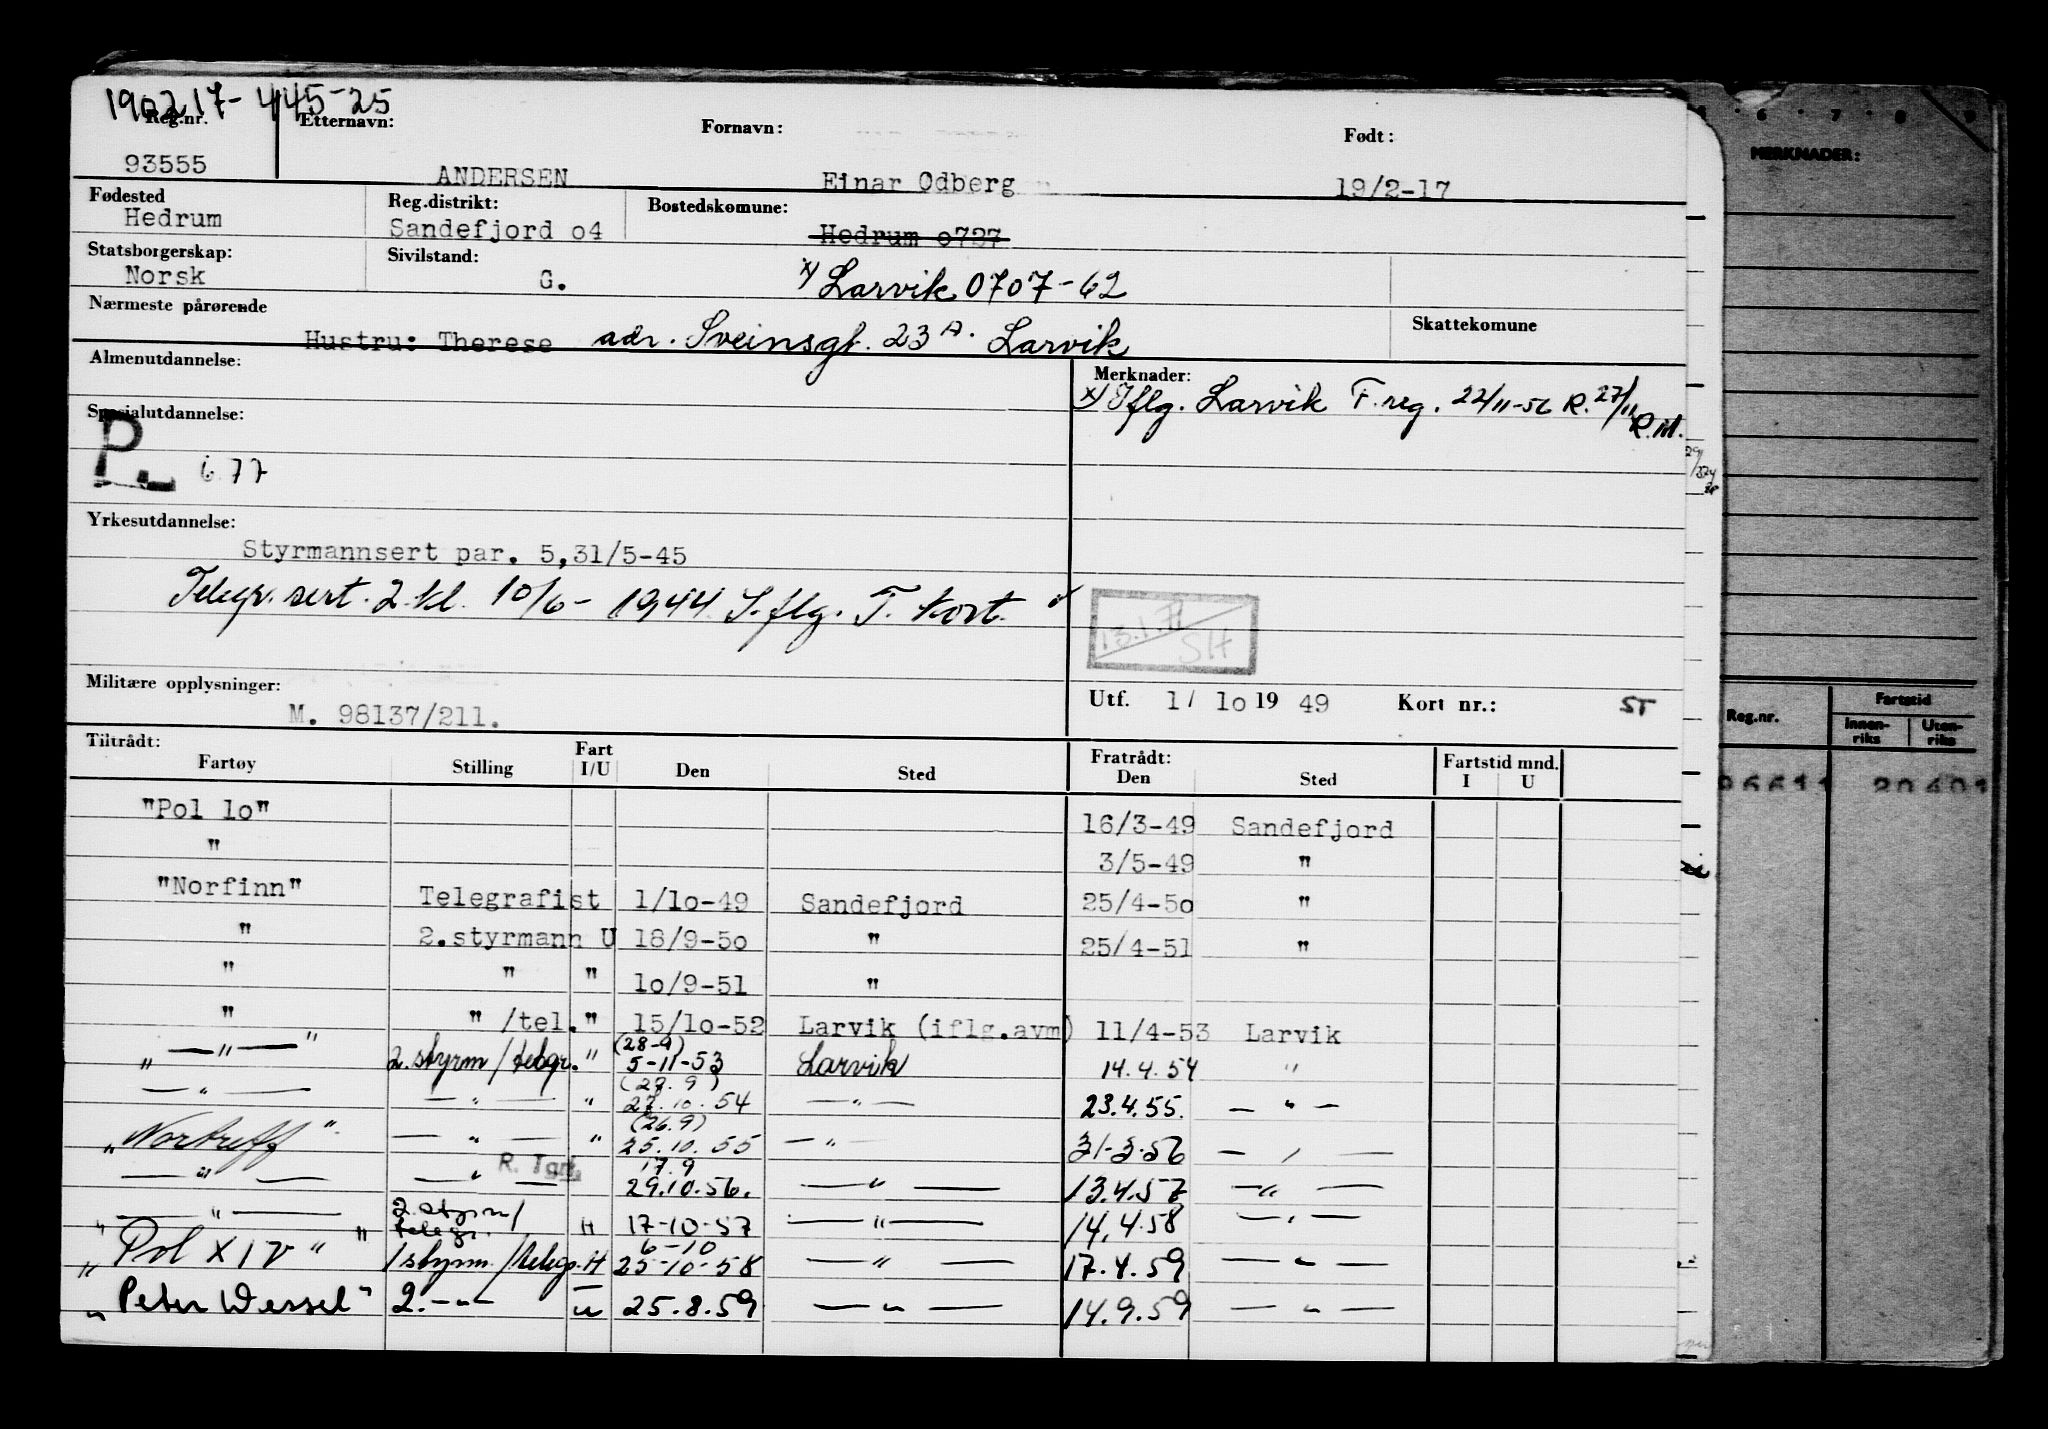 190217-445-25
Reg.nr. Etternavn: Fornavn: Født:
93555 ANDERSEN Einar Odberg 19/2-17
Fødested Reg.distrikt: Bostedskomune:
Hedrum Sandefjord o4 Hedrum o727
Statsborgerskap: Sivilstand:
Norsk G. x) Larvik 0707-62
Nærmeste pårørende Skattekomune
Hustru: Therese adr. Sveinsgt. 23 A. Larvik
Almenutdannelse: Merknader:
x) Iflg. Larvik F.reg. 22/11-56 R. 27/11
R.
Spesialutdannelse:
P. 6 77
Yrkesutdannelse:
Styrmannsert par. 5,31/5-45
Telegr. sert. 2 kl. 10/6-1944 I.flg. T. kort.
13.1.71
SH
Militære opplysninger: Utf. 1/ lo 19 49 Kort nr.: ST
M. 98137/211.
Tiltrådt: Fart Fratrådt: Fartstid mnd.
Fartøy Stilling I/U Den Sted Den Sted I U
"Pol lo" 16/3-49 Sandefjord
" 3/5-49 "
"Norfinn" Telegrafist 1/lo-49 Sandefjord 25/4-5o "
" 2.styrmann U 18/9-5o " 25/4-51 "
" " " lo/9-51 "
" " /tel. " 15/lo-52 Larvik (iflg.avm) 11/4-53 Larvik
(28-9)
" — " — " 2. styrm/telegr. " 5-11-53 Larvik 14.4.54 "
(27.9)
— " — — " — " 27.10.54 — " — 23.4.55. — " —
(26.9)
"Nortreff" — " — " 25.10.55 — " — 31-3-56 — " —
R. Tønsb. 17.9
— " — — " — 29.10.56. — " — 13.4.57 — " —
2 styrm/
— " — telegr. H 17-10-57 — " — 14.4.58 — " —
6-10
" Pol XIV " 1 styrm./telegr. H 25-10-58 — " — 17.4.59 — " —
" Peter Wessel " 2. — " — u 25.8.59 — " — 14.9.59 — " —
6 7 8 9
MERKNADER:
Reg.nr. Fartstid
Innen-riks Uten-riks